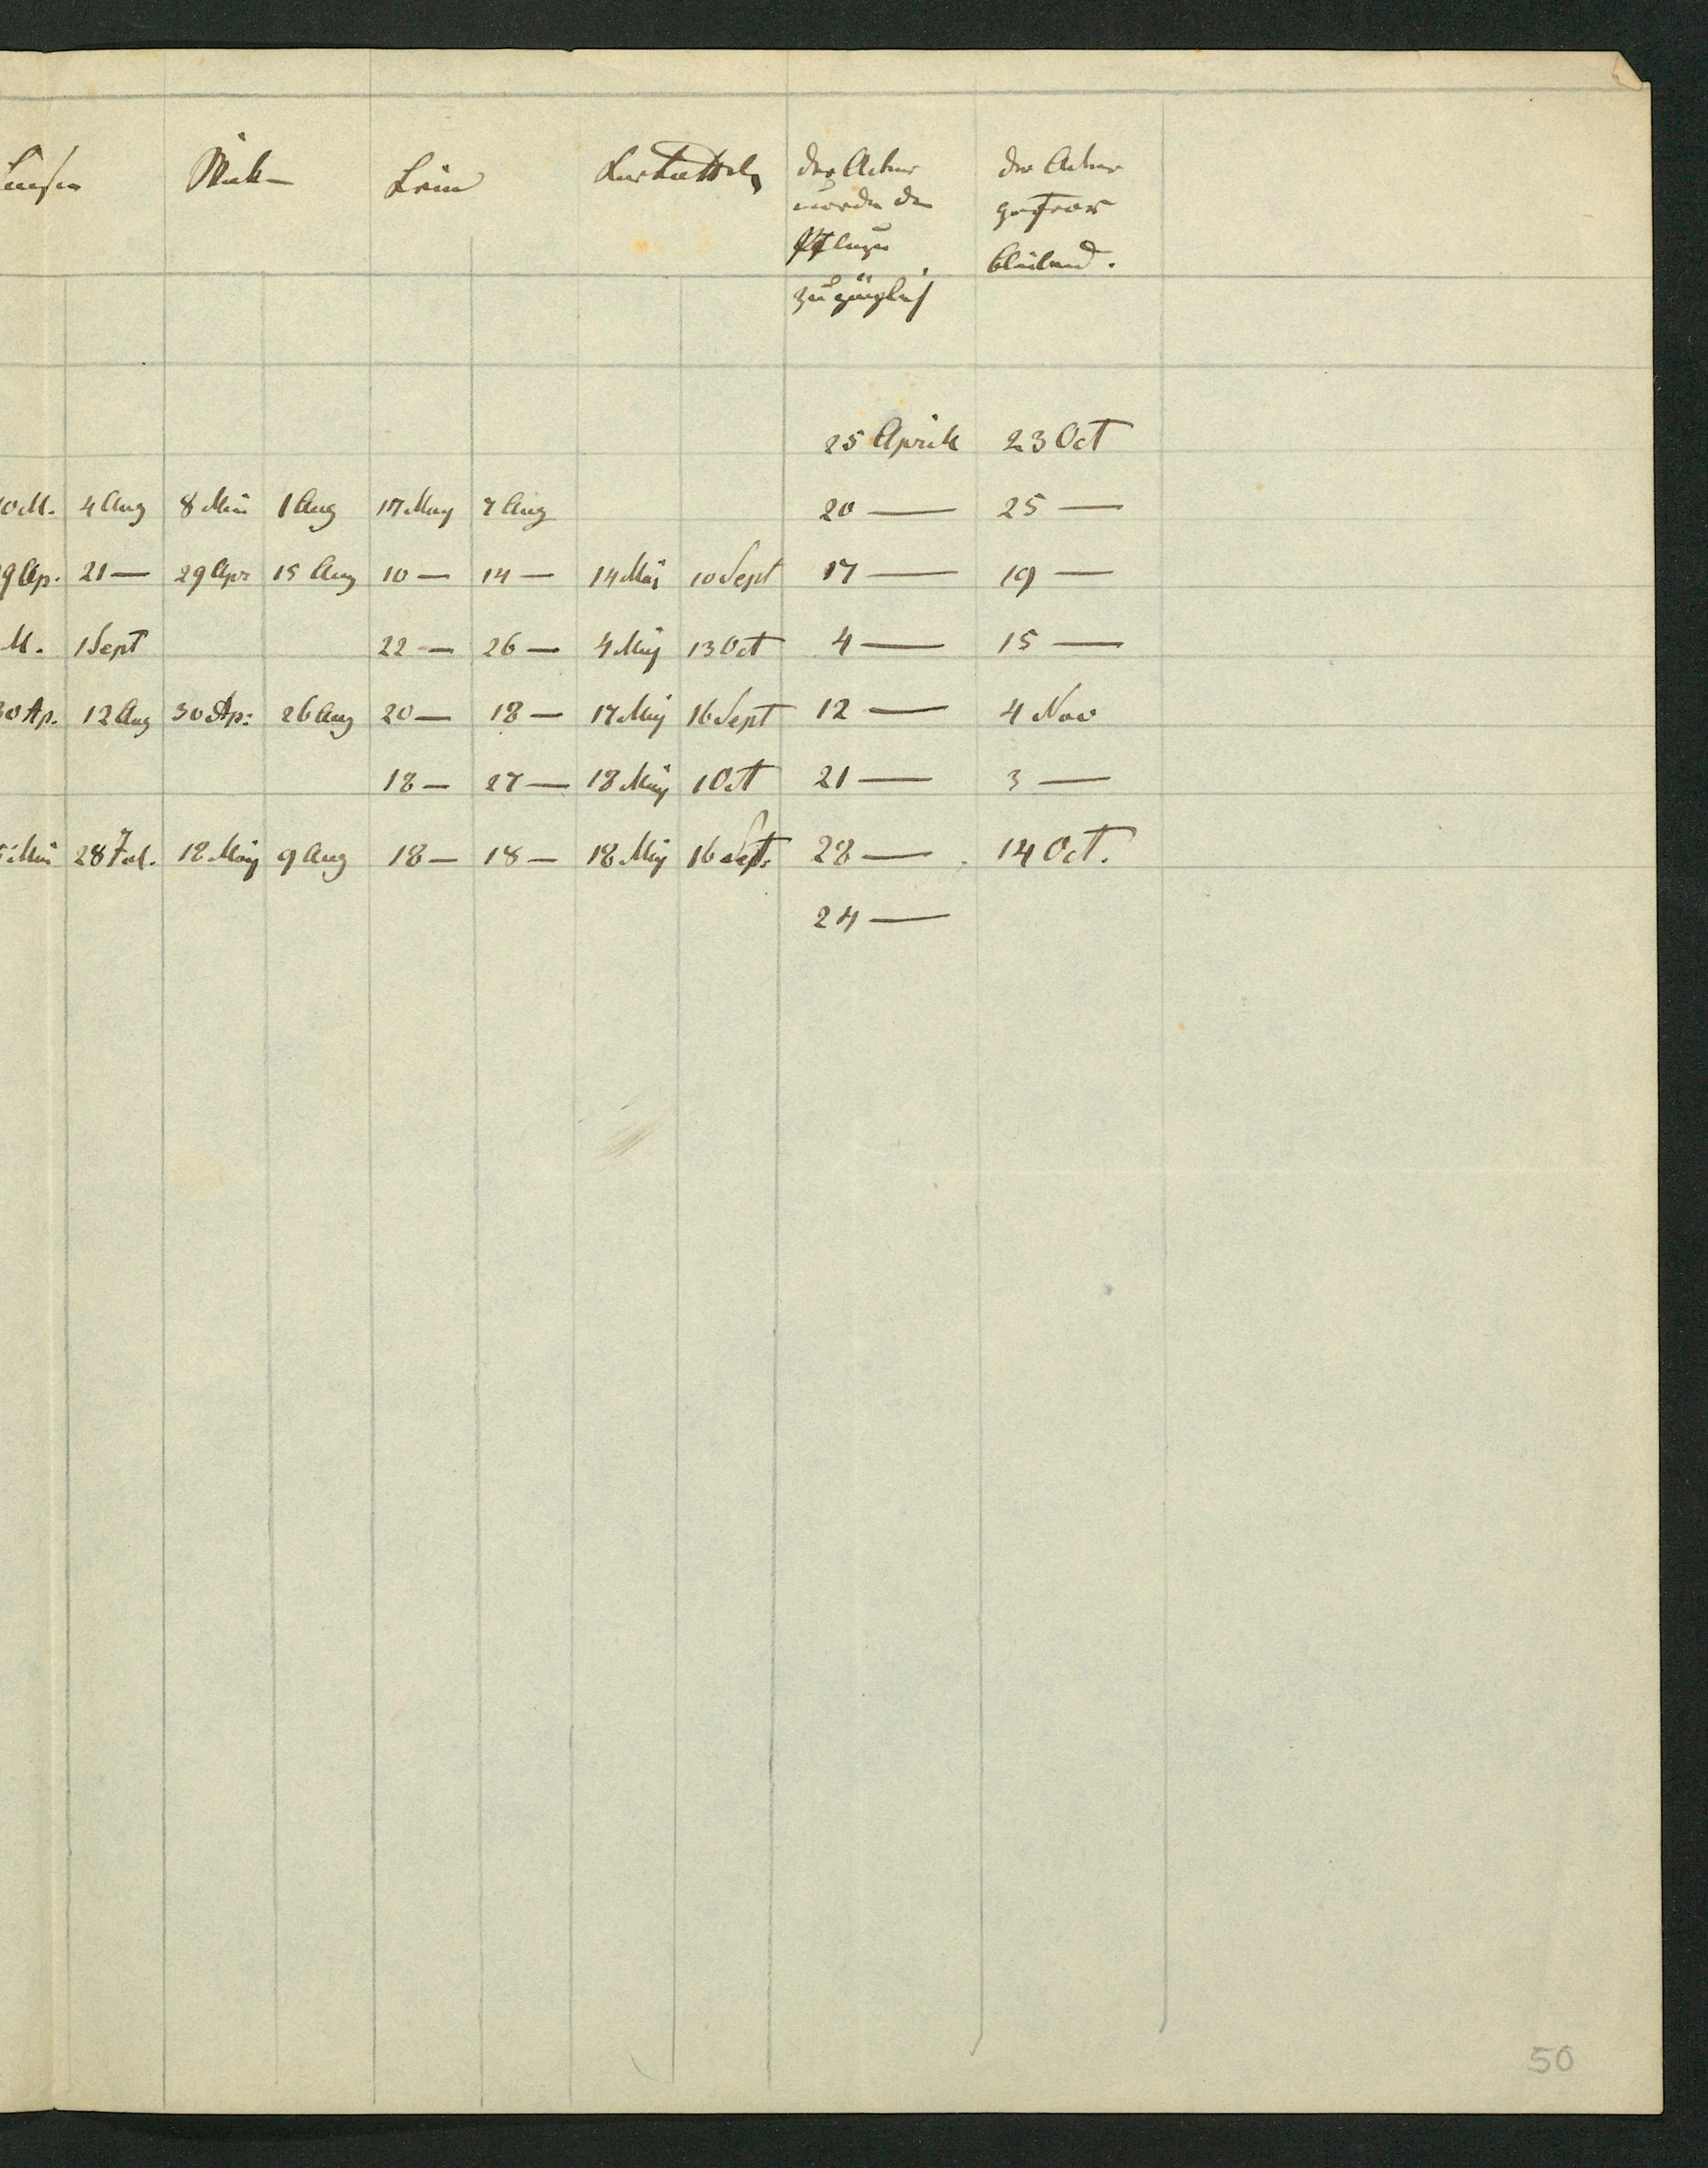 Linsen Wick- Lein Kartoffeln der Acker der Acker
wurde dem gefror
Pfluge bleibend.
zugänglich
25 Aprill 23 Oct
10 M. 4 Aug 8 Mai 1 Aug 17 May 7 Aug 20 — 25 —
29 Ap. 21 — 29 Apr 15 Aug 10 — 14 — 14 Mai 10 Sept 17 — 19 —
M. 1 Sept 22 — 26 — 4 Maj 13 Oct 4 — 15 —
30 Ap. 12 Aug 30 Ap: 26 Aug 20 — 18 — 17 Maj 16 Sept 12 — 4 Nov
18 — 27 — 18 Maj 1 Oct 21 — 3 —
Mai 28 Jul. 18 Maj 9 Aug 18 — 18 — 18 Maj 16 Sept. 28 — 14 Oct.
24 —
50